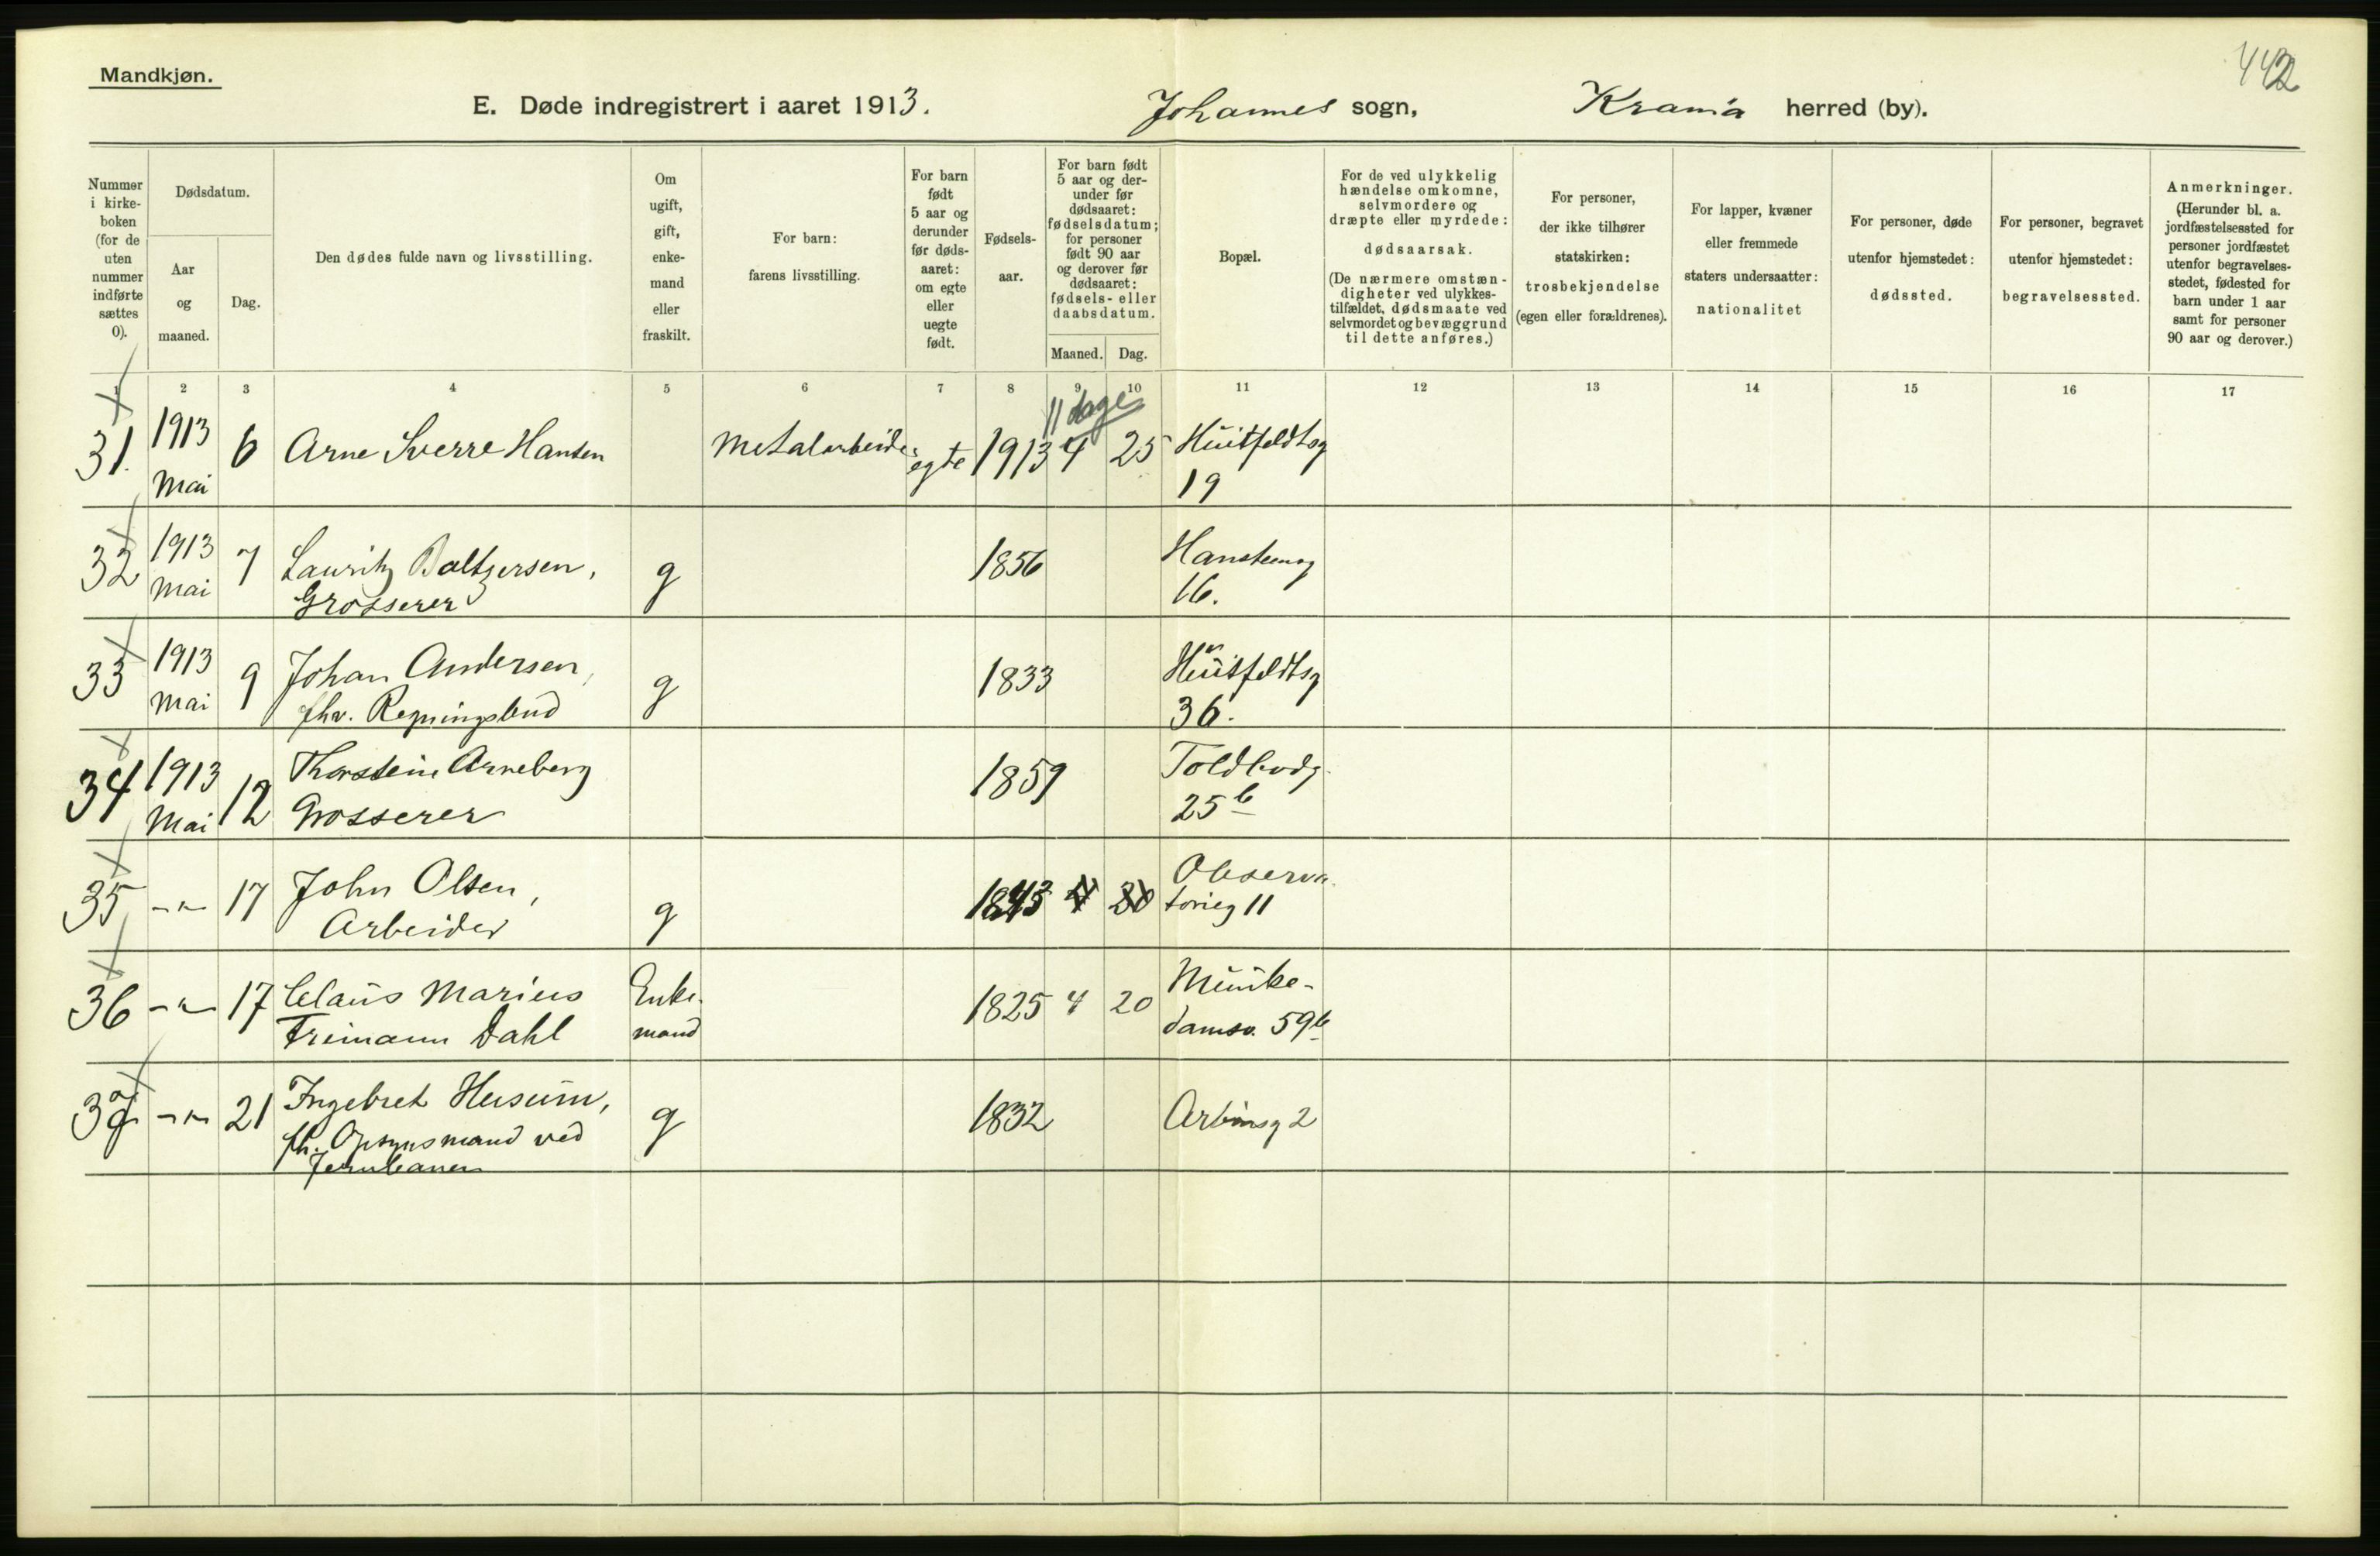 Mandkjøn.
442
E. Døde indregistrert i aaret 1913. Johannes sogn, Krania herred (by).
Nummer i kirke-boken (for de uten nummer indførte sættes 0).
Dødsdatum.
Aar og maaned.
Dag.
Den dødes fulde navn og livsstilling.
Om ugift, gift, enke-mand eller fraskilt.
For barn: farens livsstilling.
For barn født 5 aar og derunder før døds-aaret: om egte eller uegte født.
Fødsels-aar.
For barn født 5 aar og der-under før dødsaaret: fødselsdatum; for personer født 90 aar og derover før dødsaaret: fødsels- eller daabsdatum.
Maaned. Dag.
Bopæl.
For de ved ulykkelig hændelse omkomne, selvmordere og dræpte eller myrdede: dødsaarsak. (De nærmere omstæn-digheter ved ulykkes-tilfældet, dødsmaate ved selvmordet og bevæggrund til dette anføres.)
For personer, der ikke tilhører statskirken: trosbekjendelse (egen eller forældrenes).
For lapper, kvæner eller fremmede staters undersaatter: nationalitet
For personer, døde utenfor hjemstedet: dødssted.
For personer, begravet utenfor hjemstedet: begravelsessted.
Anmerkninger. (Herunder bl. a. jordfæstelsessted for personer jordfæstet utenfor begravelses-stedet, fødested for barn under 1 aar samt for personer 90 aar og derover.)
1 2 3 4 5 6 7 8 9 10 11 12 13 14 15 16 17
11 dage
31. 1913 Mai 6 Arne Sverre Hansen Metalarbeider egte 1913 4 25 Huitfeldtsg 19
32 1913 Mai 7 Lauritz Baltzersen, Grosserer g 1856 Hansteensg 16.
33 1913 Mai 9 Johan Andersen, fhv. Regningsbud g 1833 Huitfeldtsg 36.
34 1913 Mai 12 Thorstein Arneberg Grosserer 1859 Toldbodg. 25 b
35 -"- 17 John Olsen, Arbeider g 1843 Observa- torieg 11
36 -"- 17 Claus Marius Frimann Dahl Enke- mand 1825 4 20 Munke- damsv. 59 b
37 -"- 21 Ingebret Husum, fh. Opsynsmand ved Jernbanen g 1832 Arbinsg 2